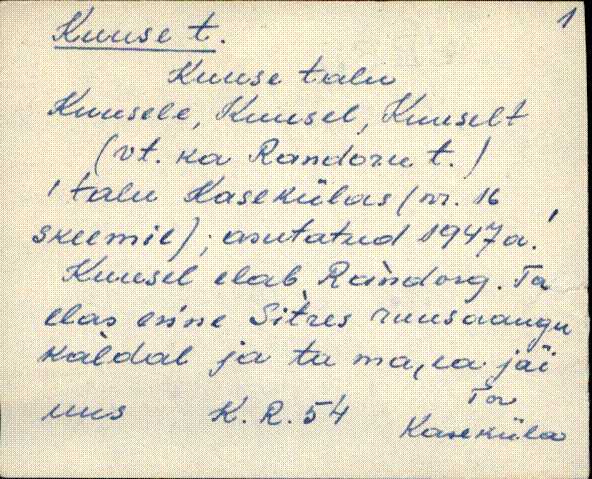 1
Kuuse t.
Kuuse talu
Kuusele, Kuusel, Kuuselt
(vt. ka Randoru t.)
'talu Kasekülas (nr. 16
skeemil); asutatud 1947a.'
Kuusel elab Ràndorg. Ta
elas enne Sìtres ruusaaugu
kàldal ja ta ma,ea jäi
uus K. R. 54 Tor
Kaseküla